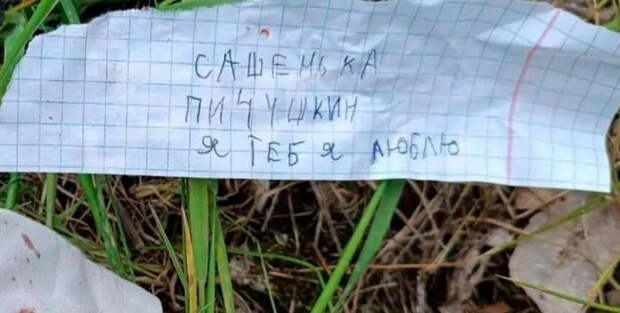 САШЕНЬКА
ПИЧУШКИН
Я ТЕБЯ ЛЮБЛЮ